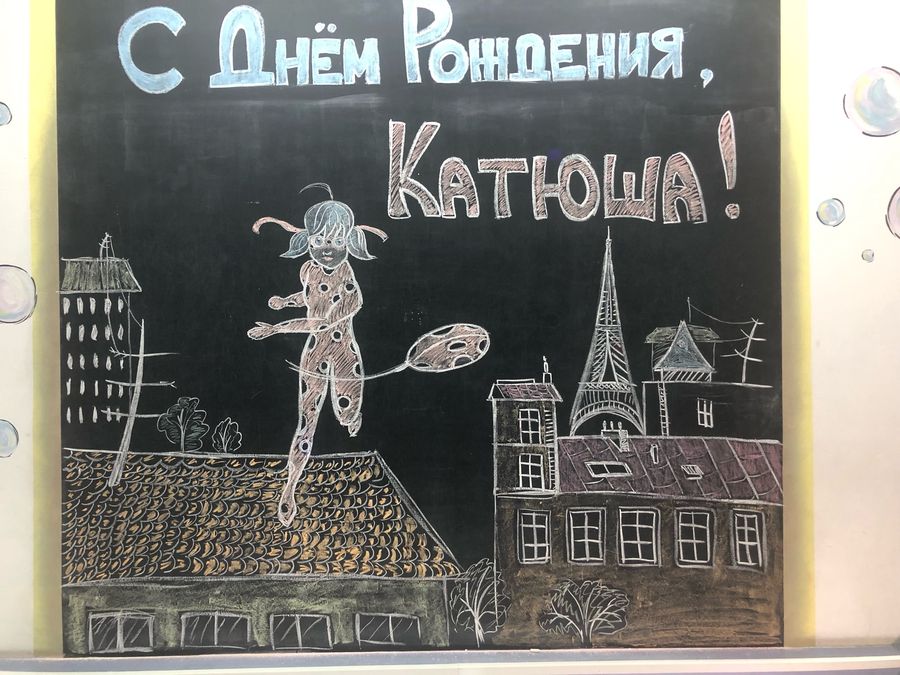 С Днём Рождения,
Катюша!